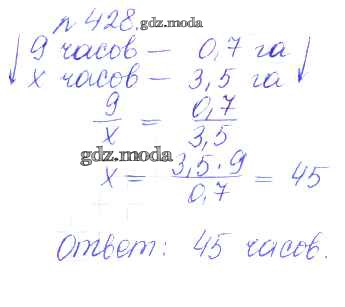 № 428. gdz.moda
↓ 9 часов – 0,7 га ↓
x часов – 3,5 га
9/x = 0,7/3,5
gdz.moda
x = 3,5 · 9/0,7 = 45
Ответ: 45 часов.